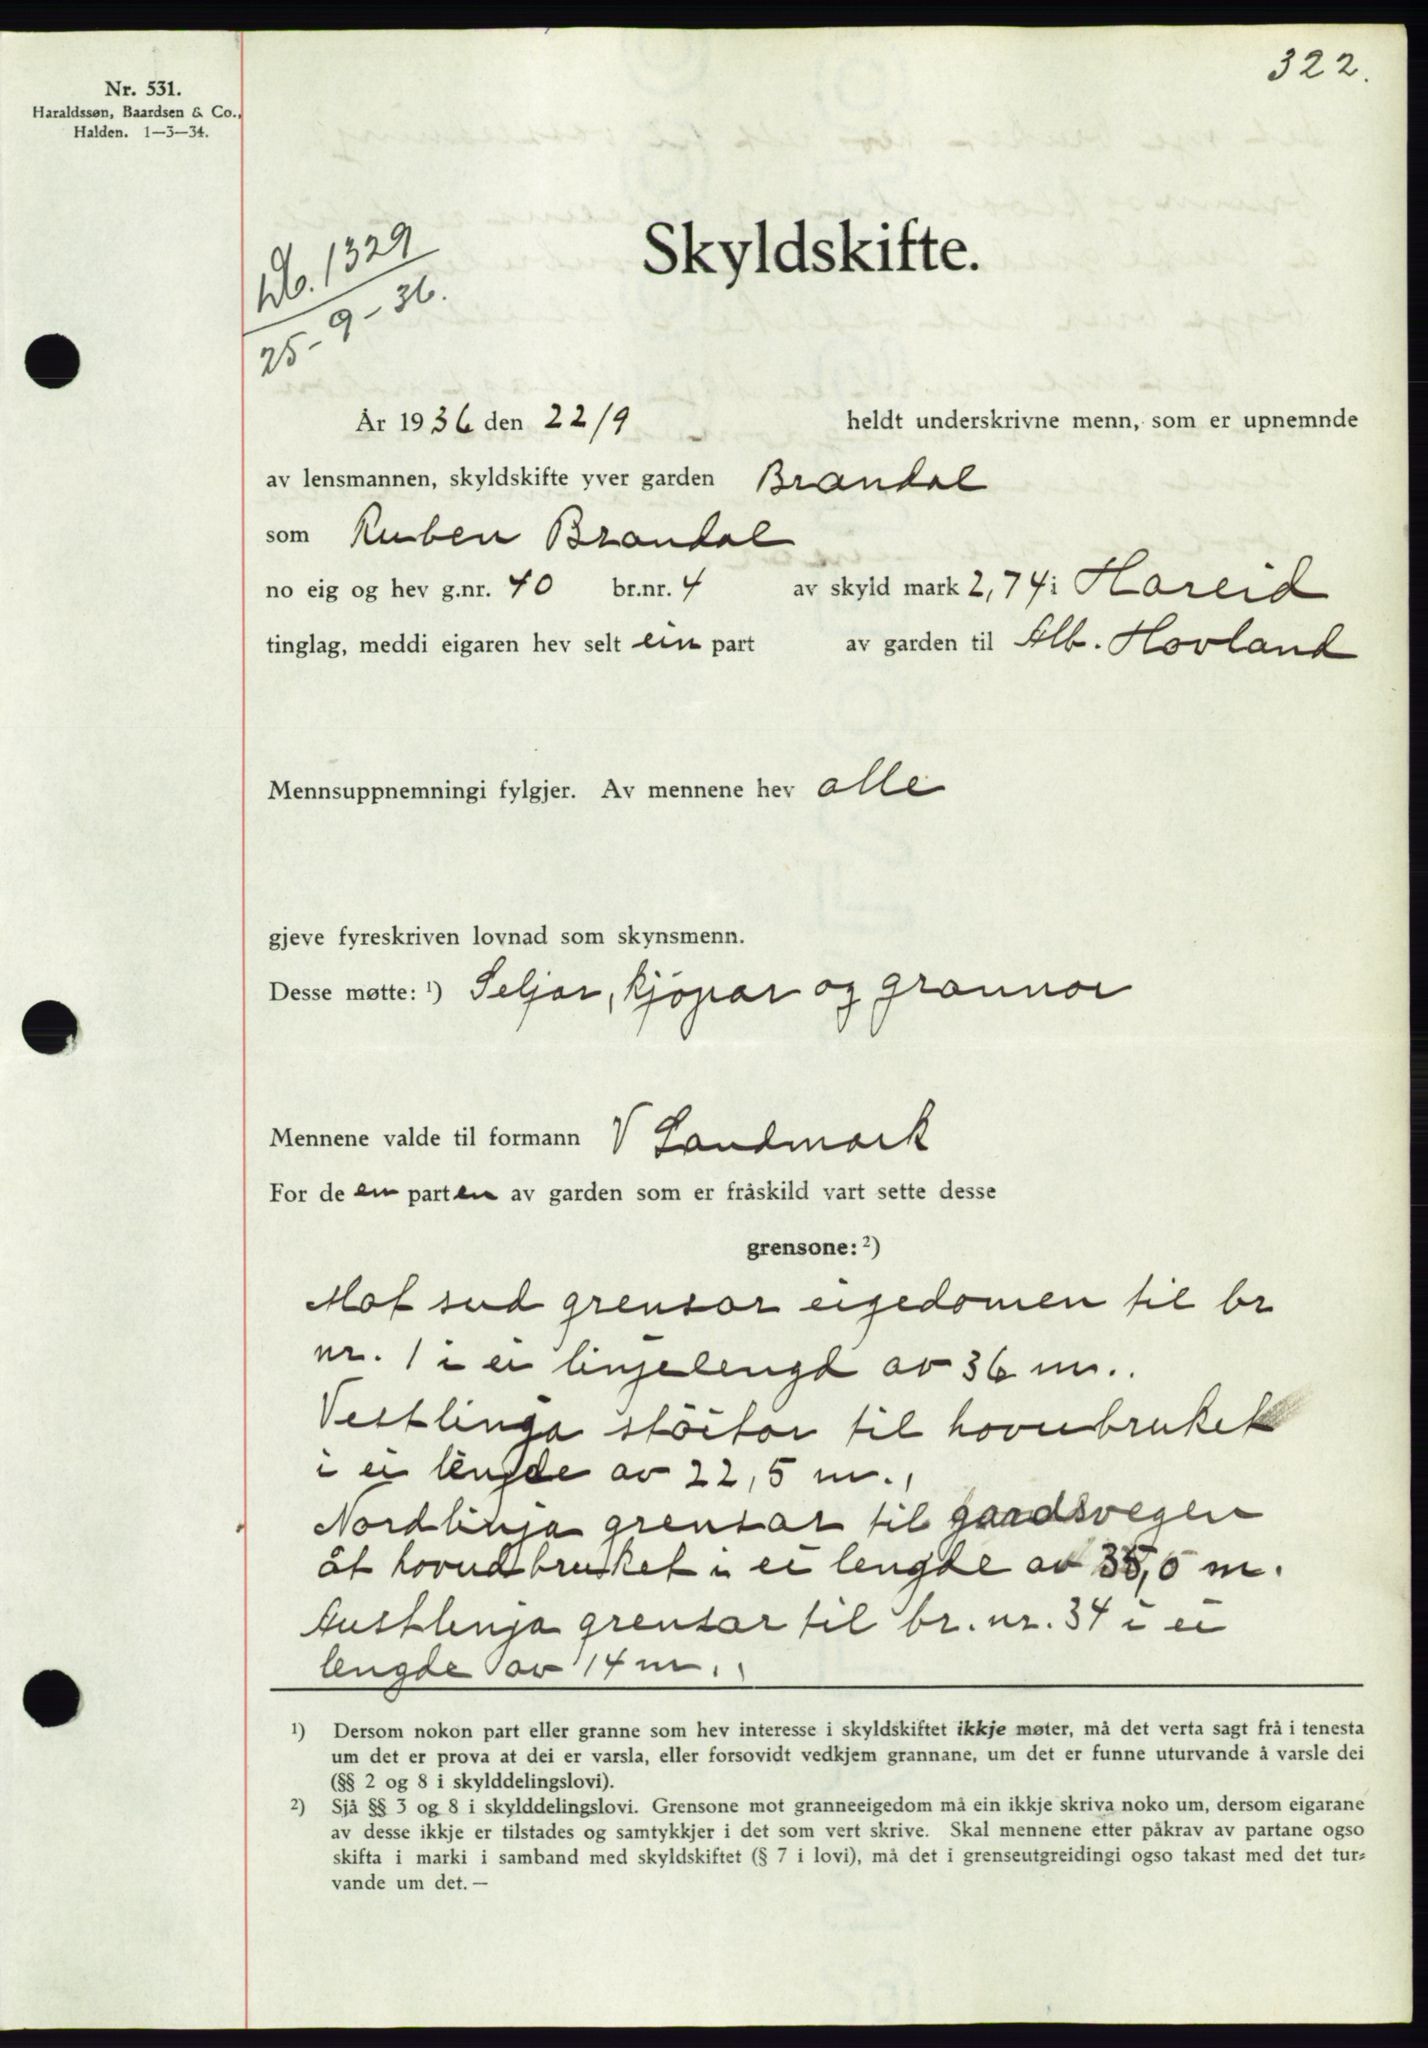 322.
Nr. 531.
Haraldssøn, Baardsen & Co.,
Halden. 1—3—34.
Skyldskifte.
Db. 1329
25-9-36.
År 1936 den 22/9 heldt underskrivne menn, som er upnemnde
av lensmannen, skyldskifte yver garden Brandal
som Ruben Brandal
no eig og hev g.nr. 40 br.nr. 4 av skyld mark 2,74 i Hareid
tinglag, meddi eigaren hev selt ein part av garden til Alb. Hovland
Mennsuppnemningi fylgjer. Av mennene hev alle
gjeve fyreskriven lovnad som skynsmenn.
Desse møtte: ¹) Seljar, kjöpar og grannar
Mennene valde til formann V Landmark
For de en parten av garden som er fråskild vart sette desse
grensone: ²)
Mot sud grensar eigedomen til br
nr. 1 i ei linjelengd av 36 m..
Vestlinja stöitar til hovubruket
i ei lengde av 22,5 m.,
Nordlinja grensar til gaardsvegen
åt hovudbruket i ei lengde av 35,0 m.
Austlinja grensar til br. nr. 34 i ei
lengde av 14 m.,
¹) Dersom nokon part eller granne som hev interesse i skyldskiftet ikkje møter, må det verta sagt frå i tenesta
um det er prova at dei er varsla, eller forsovidt vedkjem grannane, um det er funne uturvande å varsle dei
(§§ 2 og 8 i skylddelingslovi).
²) Sjå §§ 3 og 8 i skylddelingslovi. Grensone mot granneeigedom må ein ikkje skriva noko um, dersom eigarane
av desse ikkje er tilstades og samtykkjer i det som vert skrive. Skal mennene etter påkrav av partane ogso
skifta i marki i samband med skyldskiftet (§ 7 i lovi), må det i grenseutgreidingi ogso takast med det tur-
vande um det. —